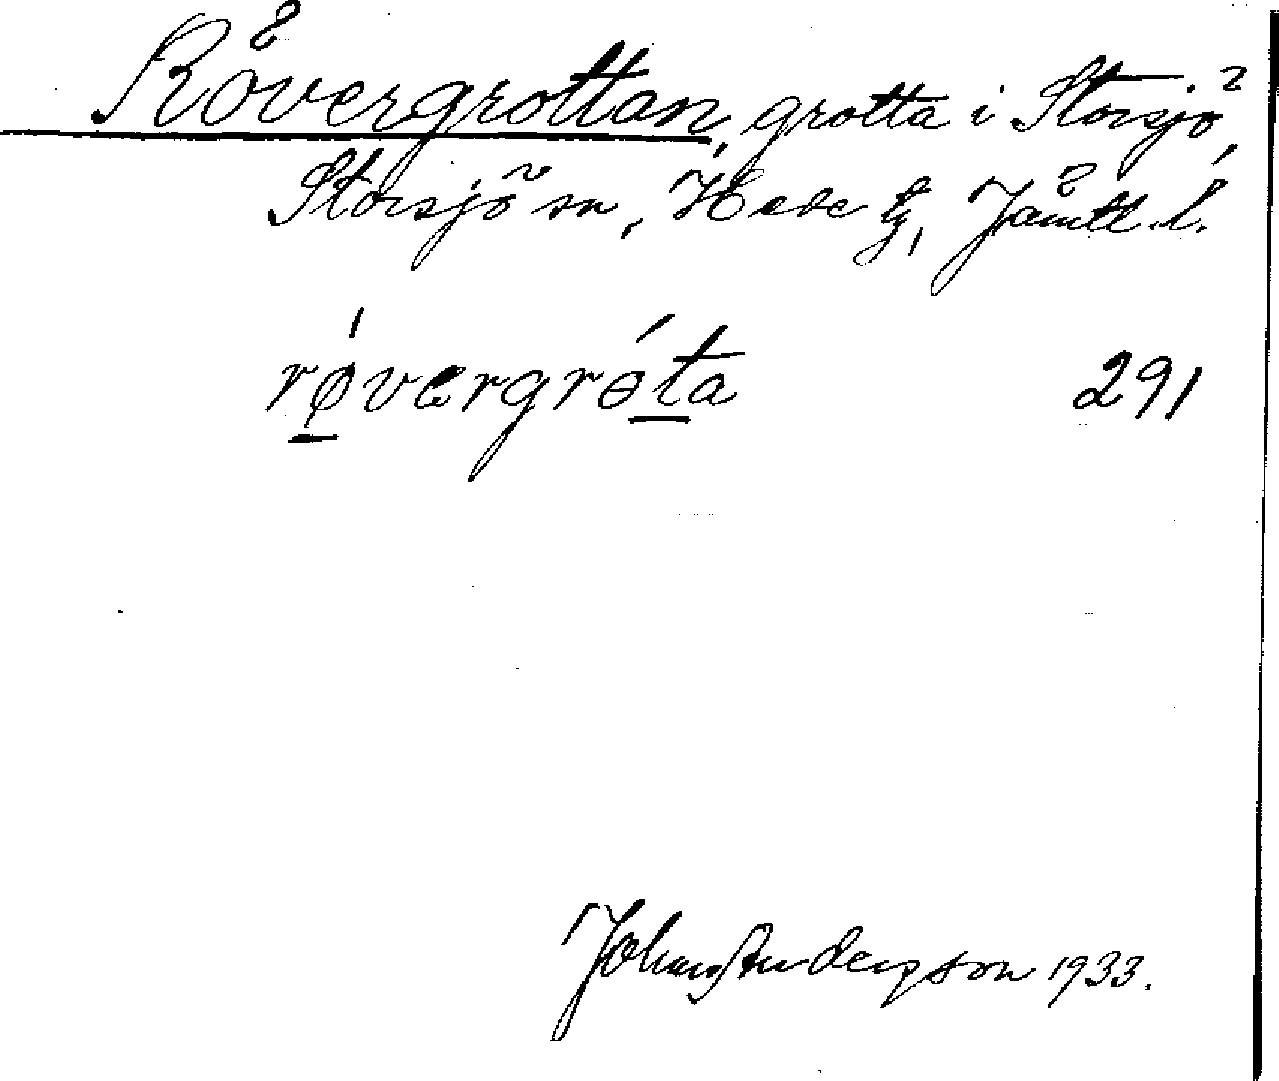 Rövergrottan, grotta i Storsjö,
Storsjö sn, Hede tg, Jämtl. l.
rǿ̱vergrǿṯa 291
Johan Anderson 1933.